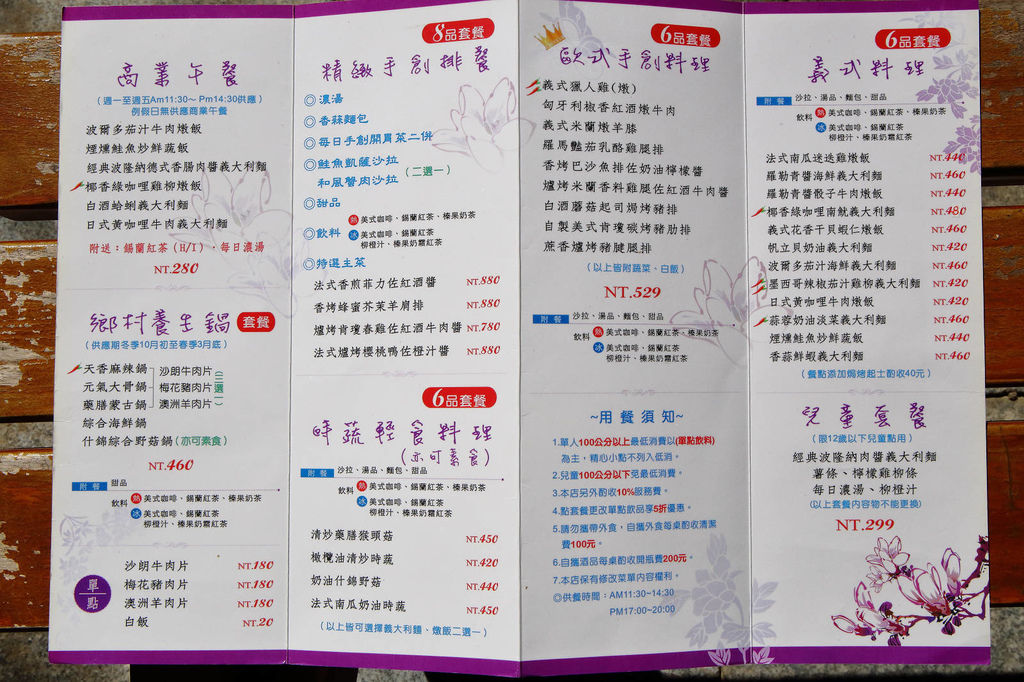 商業午餐
(週一至週五Am11:30~ Pm14:30供應)
例假日無供應商業午餐
波爾多茄汁牛肉燉飯
煙燻鮭魚炒鮮蔬飯
經典波隆納德式香腸肉醬義大利麵
椰香綠咖哩雞柳燉飯
白酒蛤蜊義大利麵
日式黃咖哩牛肉義大利麵
附送：錫蘭紅茶(H/I)，每日濃湯
NT.280
鄉村養生鍋 套餐
(供應期冬季10月初至春季3月底)
天香麻辣鍋
元氣大骨鍋
藥膳蒙古鍋
沙朗牛肉片
梅花豬肉片
澳洲羊肉片
(三選一)
綜合海鮮鍋
什錦綜合野菇鍋(亦可素食)
NT.460
附餐 甜品
飲料 熱 美式咖啡、錫蘭紅茶、榛果奶茶
冰 美式咖啡、錫蘭紅茶
柳橙汁、榛果奶霜紅茶
單點
沙朗牛肉片 NT.180
梅花豬肉片 NT.180
澳洲羊肉片 NT.180
白飯 NT.20
8品套餐
精緻手創排餐
◎濃湯
◎香蒜麵包
◎每日手創開胃菜二併
◎鮭魚凱薩沙拉
和風臀肉沙拉
(二選一)
◎甜品
◎飲料
熱 美式咖啡、錫蘭紅茶、榛果奶茶
冰 美式咖啡、錫蘭紅茶
柳橙汁、榛果奶霜紅茶
◎特選主菜
法式香煎菲力佐紅酒醬 NT.880
香烤蜂蜜芥茉羊肩排 NT.880
爐烤肯瓊春雞佐紅酒牛肉醬 NT.780
法式爐烤櫻桃鴨佐橙汁醬 NT.880
6品套餐
時蔬輕食料理
(亦可素食)
附餐 沙拉、湯品、麵包、甜品
飲料 熱 美式咖啡、錫蘭紅茶、榛果奶茶
冰 美式咖啡、錫蘭紅茶
柳橙汁、榛果奶霜紅茶
清炒藥膳猴頭菇 NT.450
橄欖油清炒時蔬 NT.420
奶油什錦野菇 NT.440
法式南瓜奶油時蔬 NT.450
(以上皆可選擇義大利麵、燉飯二選一)
6品套餐
歐式手創料理
義式獵人雞(燉)
匈牙利椒香紅酒燉牛肉
義式米蘭燉羊膝
羅馬豔茄乳酪雞腿排
香烤巴沙魚排佐奶油檸檬醬
爐烤米蘭香料雞腿佐紅酒牛肉醬
白酒蘑菇起司焗烤豬排
自製美式肯瓊碳烤豬肋排
蔗香爐烤豬腱腿排
(以上皆附蔬菜、白飯)
NT.529
附餐 沙拉、湯品、麵包、甜品
飲料 熱 美式咖啡、錫蘭紅茶、榛果奶茶
冰 美式咖啡、錫蘭紅茶
柳橙汁、榛果奶霜紅茶
~用餐須知~
1.單人100公分以上最低消費以(單點飲料)
為主，精心小點不列入低消。
2.兒童100公分以下免最低消費。
3.本店另外酌收10%服務費。
4.點套餐更改單點飲品享5折優惠。
5.請勿攜帶外食，自攜外食每桌酌收清潔
費100元。
6.自攜酒品每桌酌收開瓶費200元。
7.本店保有修改菜單內容權利。
◎供餐時間：AM11:30~14:30
PM17:00~20:00
6品套餐
義式料理
附餐 沙拉、湯品、麵包、甜品
飲料 熱 美式咖啡、錫蘭紅茶、榛果奶茶
冰 美式咖啡、錫蘭紅茶
柳橙汁、榛果奶霜紅茶
法式南瓜迷迭雞燉飯 NT.440
羅勒青醬海鮮義大利麵 NT.460
羅勒青醬骰子牛肉燉飯 NT.440
椰香綠咖哩南魷義大利麵 NT.480
義式花香干貝蝦仁燉飯 NT.460
帆立貝奶油義大利麵 NT.420
波爾多茄汁海鮮義大利麵 NT.460
墨西哥辣椒茄汁雞柳義大利麵 NT.420
日式黃咖哩牛肉燉飯 NT.420
蒜蓉奶油淡菜義大利麵 NT.460
煙燻鮭魚炒鮮蔬飯 NT.440
香蒜鮮蝦義大利麵 NT.460
(餐點添加焗烤起士酌收40元)
兒童套餐
(限12歲以下兒童點用)
經典波隆納肉醬義大利麵
薯條、檸檬雞柳條
每日濃湯、柳橙汁
(以上套餐內容物不能更換)
NT.299